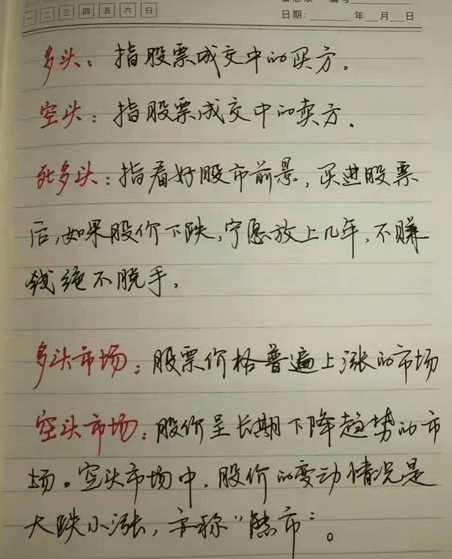 一 二 三 四 五 六 日
日期: 年 月 日
多头：指股票成交中的买方.
空头：指股票成交中的卖方.
死多头：指看好股市前景，买进股票
后，如果股价下跌，宁愿放上几年，不赚
钱绝不脱手。
多头市场：股票价格普遍上涨的市场
空头市场：股价呈长期下降趋势的市
场。空头市场中，股价的变动情况是
大跌小涨，亦称“熊市”。